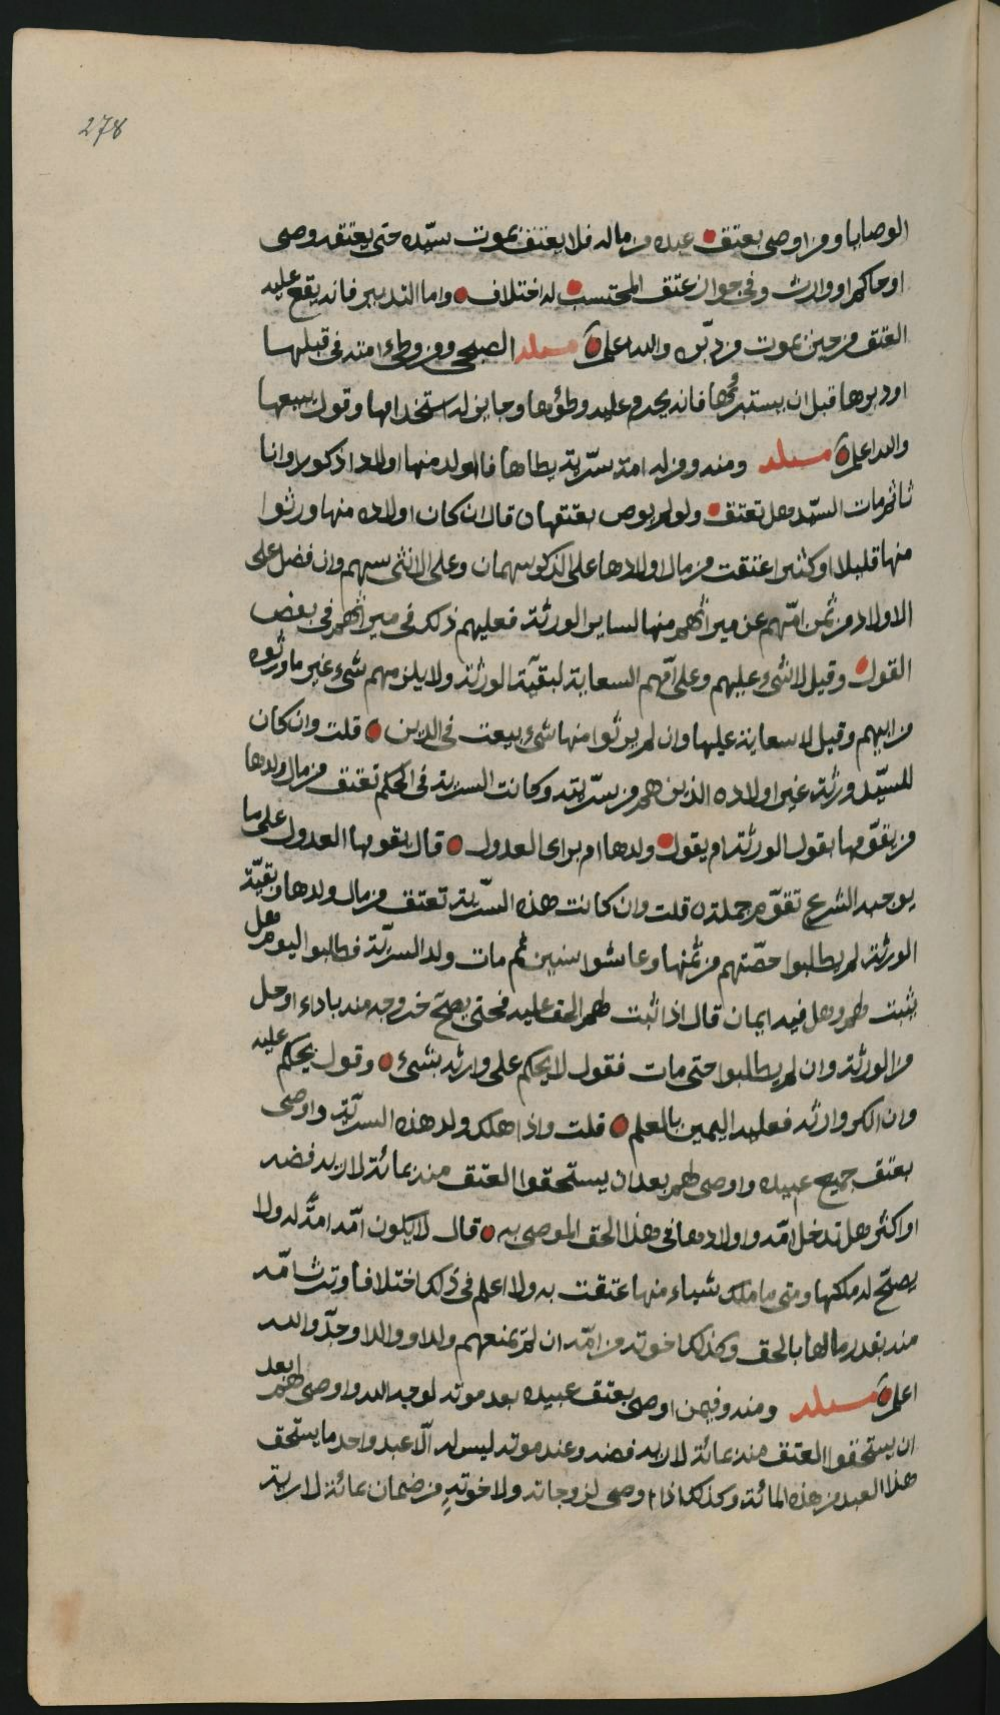 278
الوصايا ومن اوصى بعتق عبده من ماله فلا يعتق بموت سيّده حتى يعتقه وصى
او حاكم او وارث وفى جواز عتق المحتسب له اختلاف واما التدبير فانه يقع عليه
العتق من حين يموت من دبّره والله اعلم مسئلة الصبحى ومن وطىء امته فى قبلها
او دبرها قبل ان يستبرئها فانه يحرم عليه وطؤها وجايز له استخدامها وقول يبيعها
والله اعلم مسئلة ومنه ومن له امة سرّية يطاها فالولد منها اولاد اذكورا وانا
ثا ثم مات السيّد هل تعتق ولو لم يوص بعتقها قال ان كان اولاده منها ورثوا
منها قليلا او كثيرا عتقت من مال اولادها على الذكر سهمان وعلى الانثى سهم وان فضل على
الاولاد من ثمن امّهم عن ميراثهم منها لساير الورثة فعليهم ذلك فى ميراثهم فى بعض
القول وقيل لا شىء عليهم وعلى امّهم السعاية لبقيّة الورثة ولا يلزمهم شىء غير ما ورثوه
من ابيهم وقيل لا سعاية عليها وان لم يرثوا منها شىء بيعت فى الدين قلت وان كان
للسيّد ورثة غير اولاده الذين هم من سرّيته وكانت السرية فى الحكم تعتق من مال ولدها
من يقوّمها بقول الورثة ام بقول ولدها ام براى العدول قال يقومها العدول على ما
يوجبه الشرع تقوّم جملة قلت وان كانت هذه السرّية تعتق من مال ولدها وبقيّة
الورثة لم يطلبوا حصّتهم من ثمنها وعاشوا سنين ثم مات ولد السرّية فطالبوا اليوم هل
يثبت لهم وهل فيه ايمان قال اذا ثبت لهم الحق عليه فحتى يصحّ خروجه منه باداء او حل
من الورثة وان لم يطلبوا حتى مات فقول لا يحكم على وارثه بشىء وقول يحكم عليه
وان انكر وارثه فعليه اليمين بالعلم قلت واذا هلك ولد هذه السرّية واوصى
بعتق جميع عبيده واوصى لهم بعد ان يستحقوا العتق منه بمائة لارية فضه
او اكثر هل تدخل امّه واولادها فى هذا الحق الموصى به قال لا تكون امّه امة له ولا
يصحّ له ملكها ومتى ما ملك شياء منها عتقت به ولا اعلم فى ذلك اختلافا وترث امّه
منه بقدر مالها بالحق وكذلك اخوته من امّه ان لم يمنعهم ولد او والد او جدّ والله
اعلم مسئلة ومنه وفيمن اوصى بعتق عبيده بعد موته لوجه الله واوصى لهم بعد
ان يستحقوا العتق منه بمائة لارية فضه وعند موته ليس له الّا عبد واحد ما يستحق
هذا العبد من هذه المائة وكذلك اذا اوصى لزوجاته ولاخوته من ضمان بمائة لارية